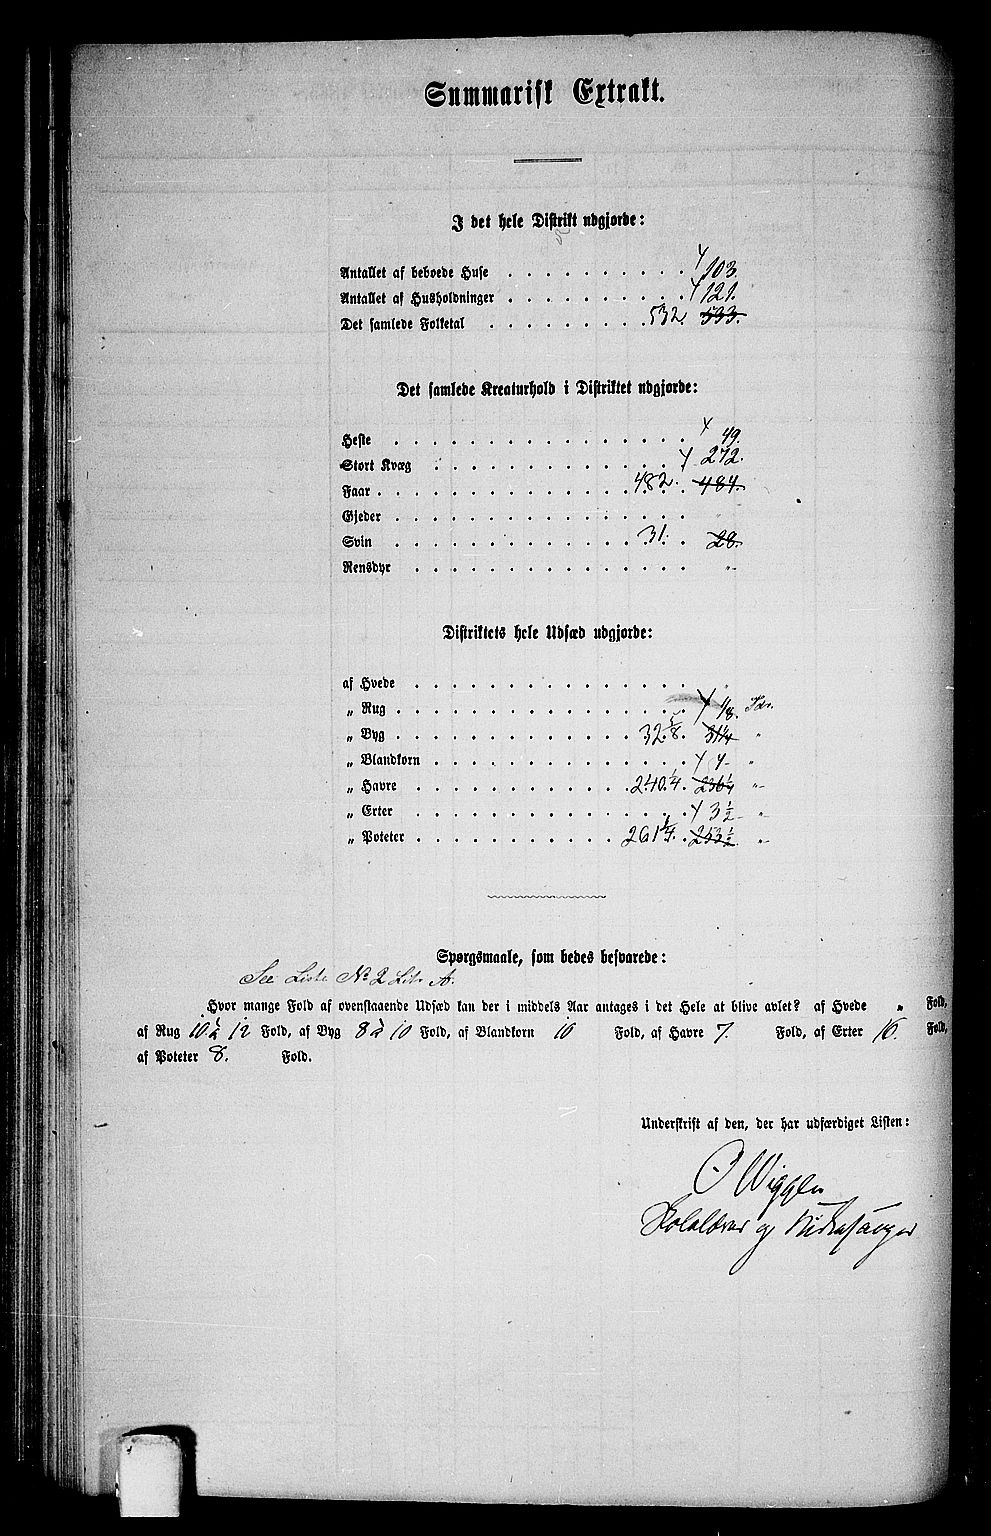 Summarisk Extrakt.
I det hele Distrikt udgjorde:
Antallet af beboede Huse . . . . . . . . . . . 103.
Antallet af Husholdninger . . . . . . . . . . . 121.
Det samlede Folketal . . . . . . . . . 532. 533.
Det samlede Kreaturhold i Distriktet udgjorde:
Heste . . . . . . . . . . . . . . . . . . 49.
Stort Kvæg . . . . . . . . . . . . . . 272.
Faar . . . . . . . . . . . . . . . 482. 484.
Gjeder . . . . . . . . . . . . . . . . . . "
Svin . . . . . . . . . . . . . . . 31. 28.
Rensdyr . . . . . . . . . . . . . . . . . "
Distriktets hele Udsæd udgjorde:
af Hvede . . . . . . . . . . . . . . . . . "
„ Rug . . . . . . . . . . . . . . . . . . 1/8. Tdr.
„ Byg . . . . . . . . . . . . . . 32 5/8. 31 1/4 "
„ Blandkorn . . . . . . . . . . . . . . . 4 - "
„ Havre . . . . . . . . . . . . . 240 1/4. 236 1/4 "
„ Erter . . . . . . . . . . . . . . . . . 3 1/2 - "
„ Poteter . . . . . . . . . . . . 261 1/4. 253 1/2. "
Spørgsmaale, som bedes besvarede:
See Liste No 2 Lit. A.
Hvor mange Fold af ovenstaaende Udsæd kan der i middels Aar antages i det Hele at blive avlet? af Hvede " Fold,
af Rug 10 à 12 Fold, af Byg 8 à 10 Fold, af Blandkorn 10 Fold, af Havre 7. Fold, af Erter 10. Fold,
af Poteter 8. Fold.
Underskrift af den, der har udfærdiget Listen:
O Wiggen
Skolelærer og Kirkesanger